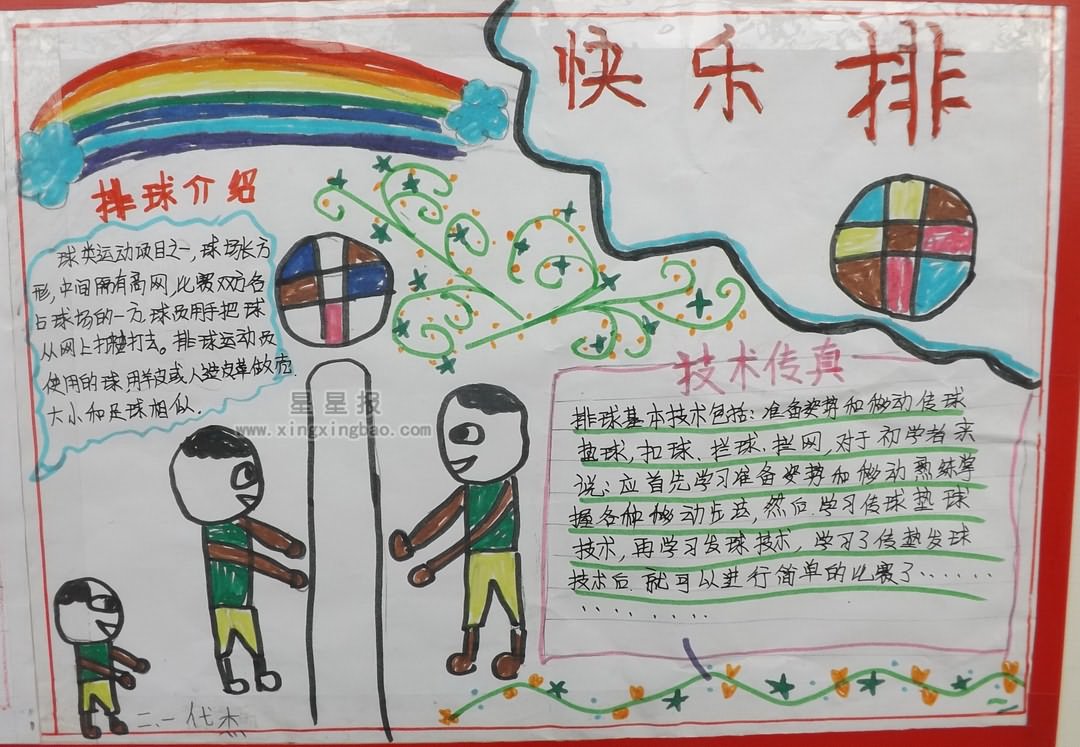 快乐排
排球介绍
球类运动项目之一,球场长方
形,中间隔有高网,比赛双方各
占球场的一方球员用手把球
从网上打去。排球运动员
使用的球用羊皮或人造皮革做壳.
大小和足球相似.
星星报
www.xingxingbao.com
技术传真
排球基本技术包括:准备姿势和移动传球
垫球,扣球、拦球、拦网,对于初学者来
说:应首先学习准备姿势和移动熟练掌
握各种移动步法,然后学习传球垫球
技术,再学习发球技术,学习了传垫发球
技术后.就可以进行简单的比赛了......
......
二、一代杰